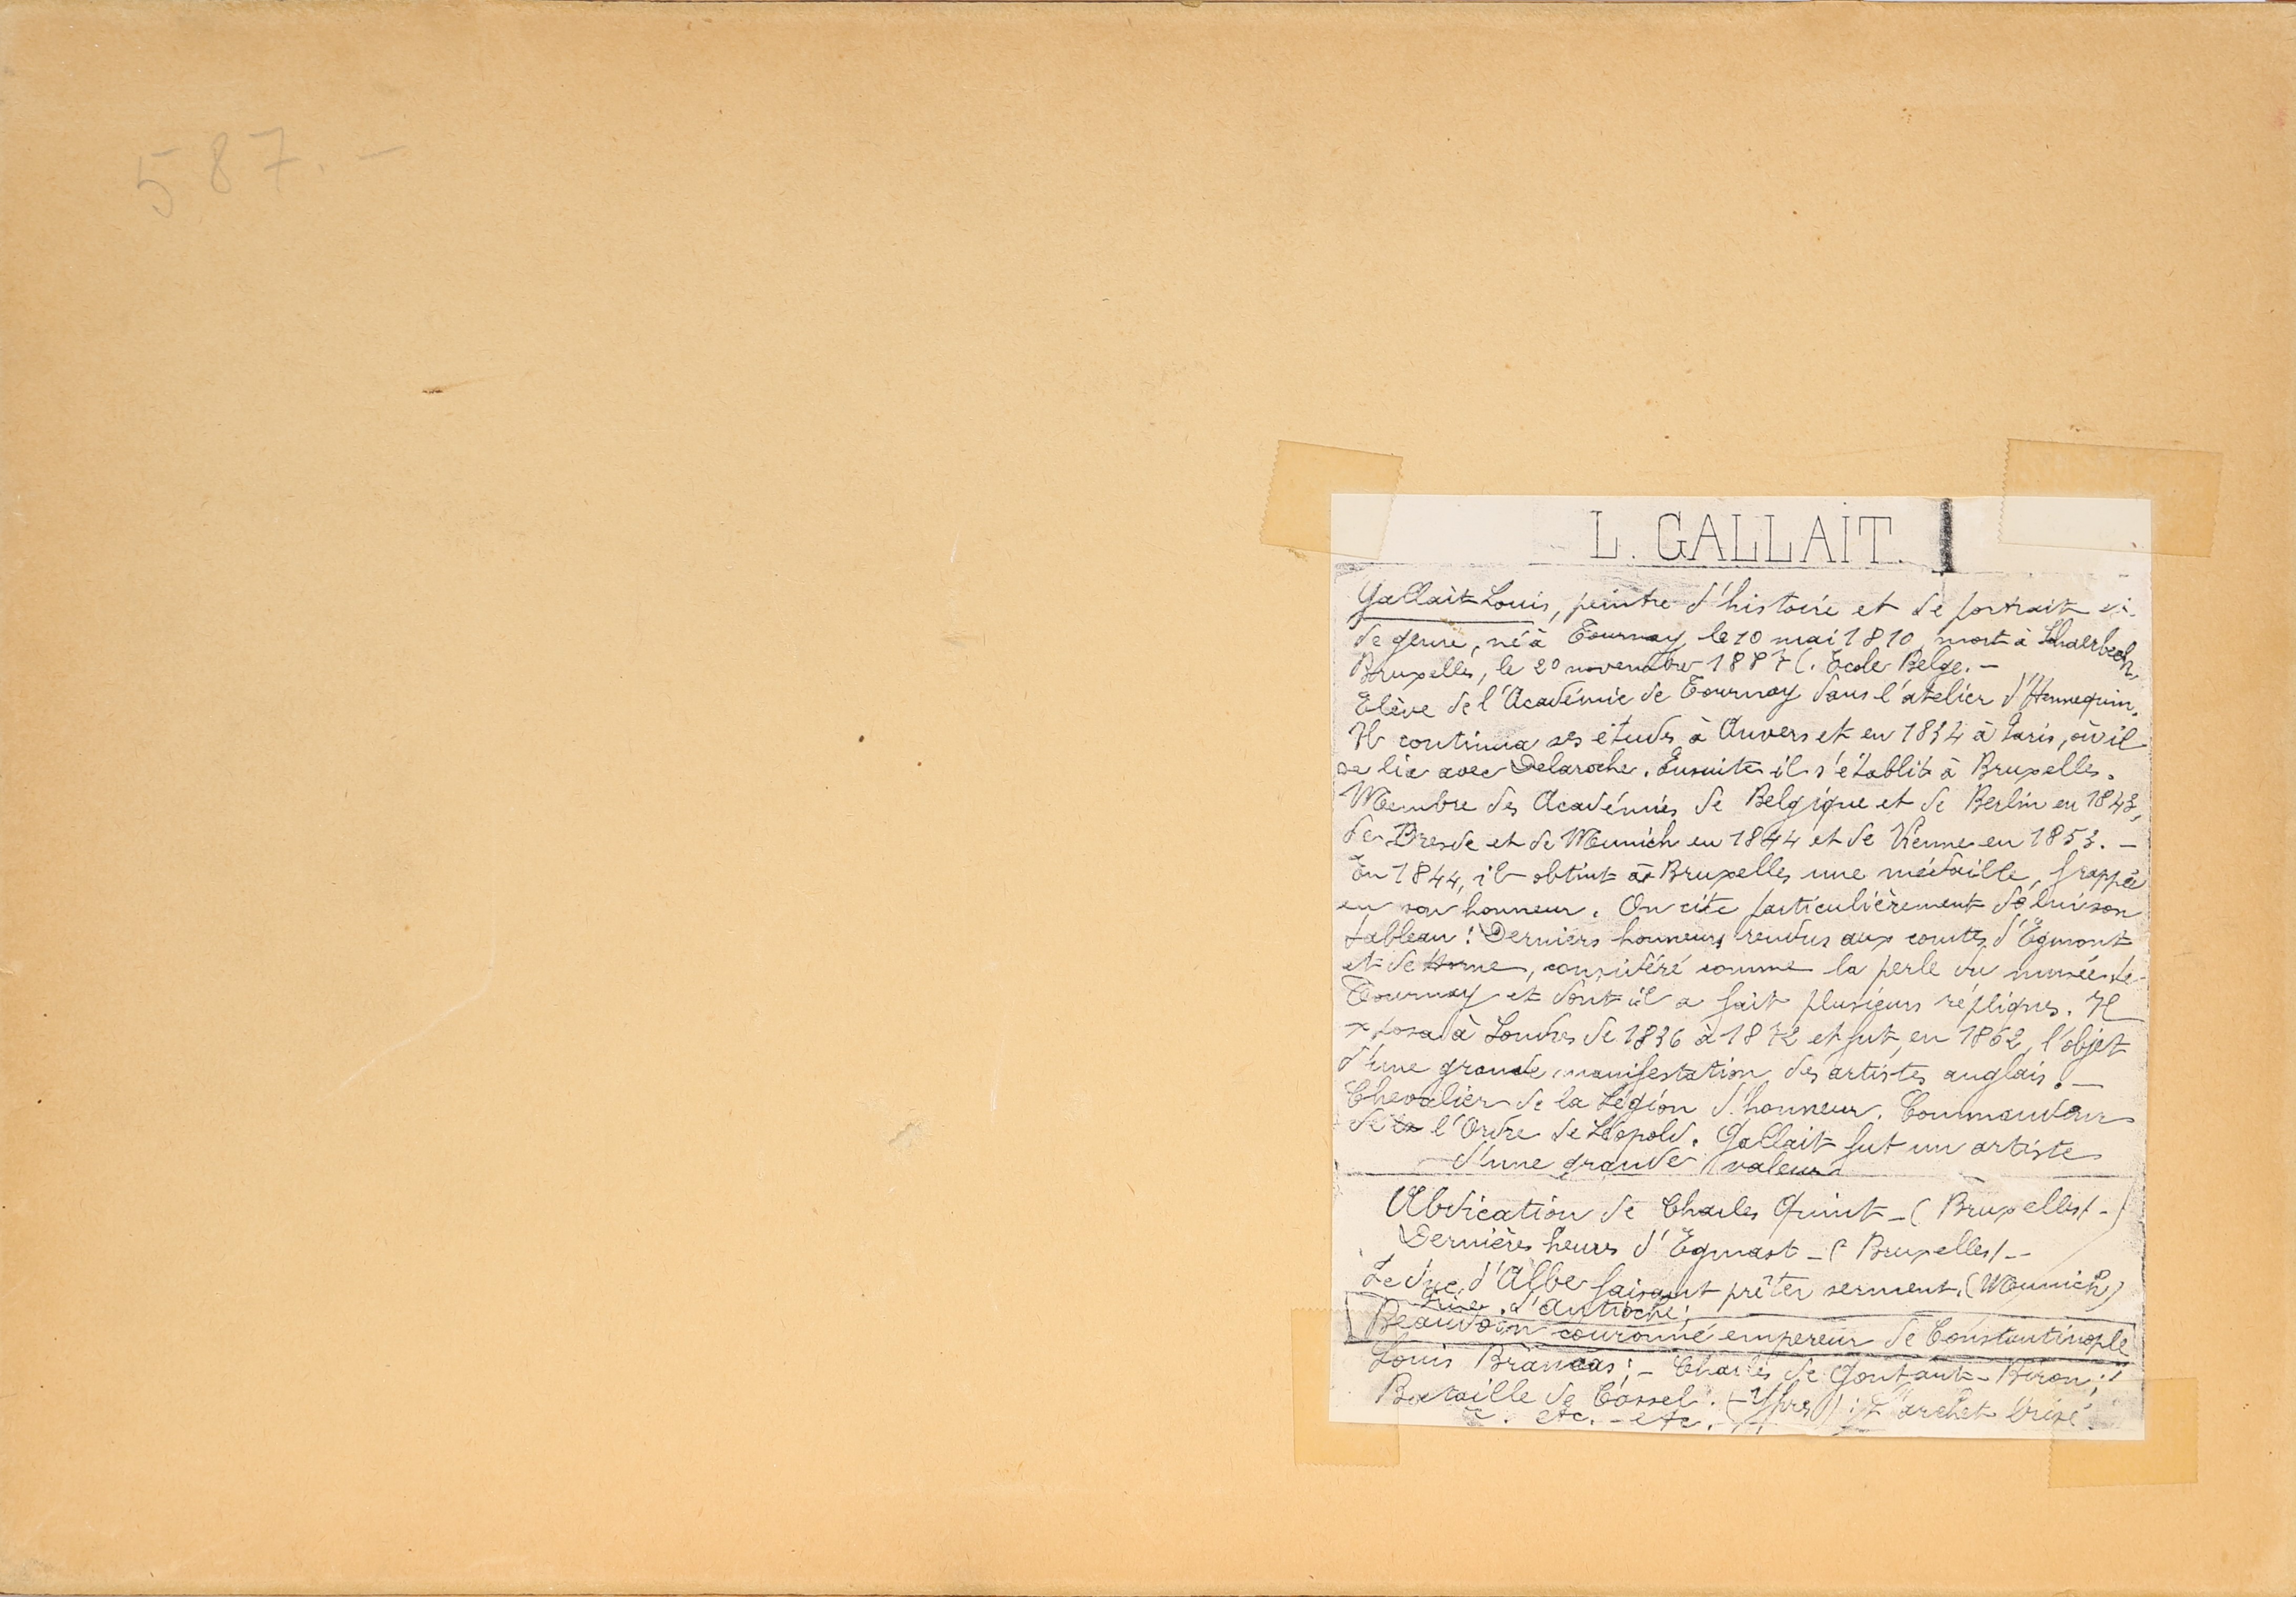 587.-
L. GALLAIT.
Gallait Louis, peintre d'histoire et de portrait et
de genre, né à Tournay le 10 mai 1810, mort à Schaerbeck
Bruxelles, le 20 novembre 1887 (. Ecole Belge. -
Elève de l'Académie de Tournay dans l'atelier d'Hennequin.
Il continua ses etudes à Anvers et en 1834 à Paris, où il
se lia avec Delaroche. Ensuite il s'établit à Bruxelles.
Membre des Académies de Belgique et de Berlin en 1843,
de Dresde et de Munich en 1844 et de Vienne en 1853. -
En 1844, il obtint à Bruxelles une médaille, frappée
en son honneur. On cite particulièrement de lui son
tableau : Derniers honneurs rendus aux comtes d'Egmont
et de Horne, considéré comme la perle du musée de
Tournay et dont il a fait plusieurs répliques. Il
xposa à Londres de 1836 à 1872 et fut, en 1862, l'objet
d'une grande manifestation des artistes anglais. -
Chevalier de la Légion d'honneur. Commandeur
de l'Ordre de Léopold. Gallait fut un artiste
d'une grande valeur
Abdication de Charles Quint - ( Bruxelles ) -
Dernières heures d'Egmont - ( Bruxelles ) - -
Le duc d'Albe faisant prêter serment. (Munich)
Prise d'Antioche;
Beaudoin couronné empereur de Constantinople
Louis Brancas ; - Charles de Gontaut - Biron ;
Bataille de Cassel. (- Ypres) : L'archet brisé
etc. - etc. -